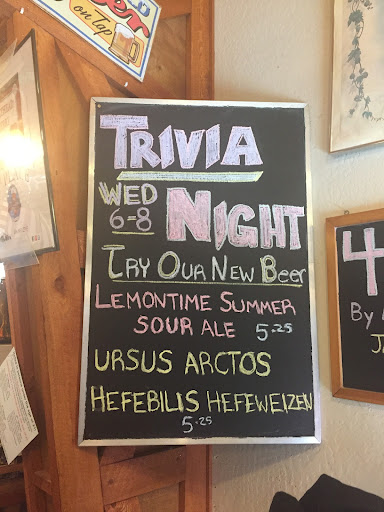 on Tap
TRIVIA
WED
6-8 NIGHT
TRY OUR NEW BEER
LEMONTIME SUMMER
SOUR ALE 5.25
URSUS ARCTOS
HEFEBILIS HEFEWEIZEN
5.25
4
By